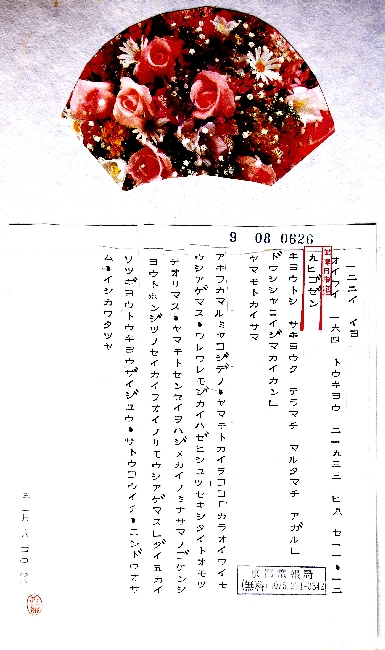 9 08 0626
一二二イ イヨ
オイフイ 一六四 トウキヨウ
配達日指定
九ヒゴゼン
キヨウトシ サキヨウク テラマチ マルタマチ アガル」
ドウシシヤニイジマカイカン」
ヤマモトカイサマ
アキフカマルミヤコジデノ・ヤマモトカイヲココロカラオイワイモ
ウシアゲマス・ワレワレモジカイハゼヒシユツセキシタイトオモツ
テオリマス・ヤマモトセンセイヲハジメカイノミナサマノゴケンシ
ヨウトホンジツノセイカイヲオイノリモウシアゲマス」ダイ五カイ
ソツギヨウトウキヨウザイジユウ・サトウコウイチ・ニンドウオサ
ム・イシカワタツヤ
京都電報局
(無料)